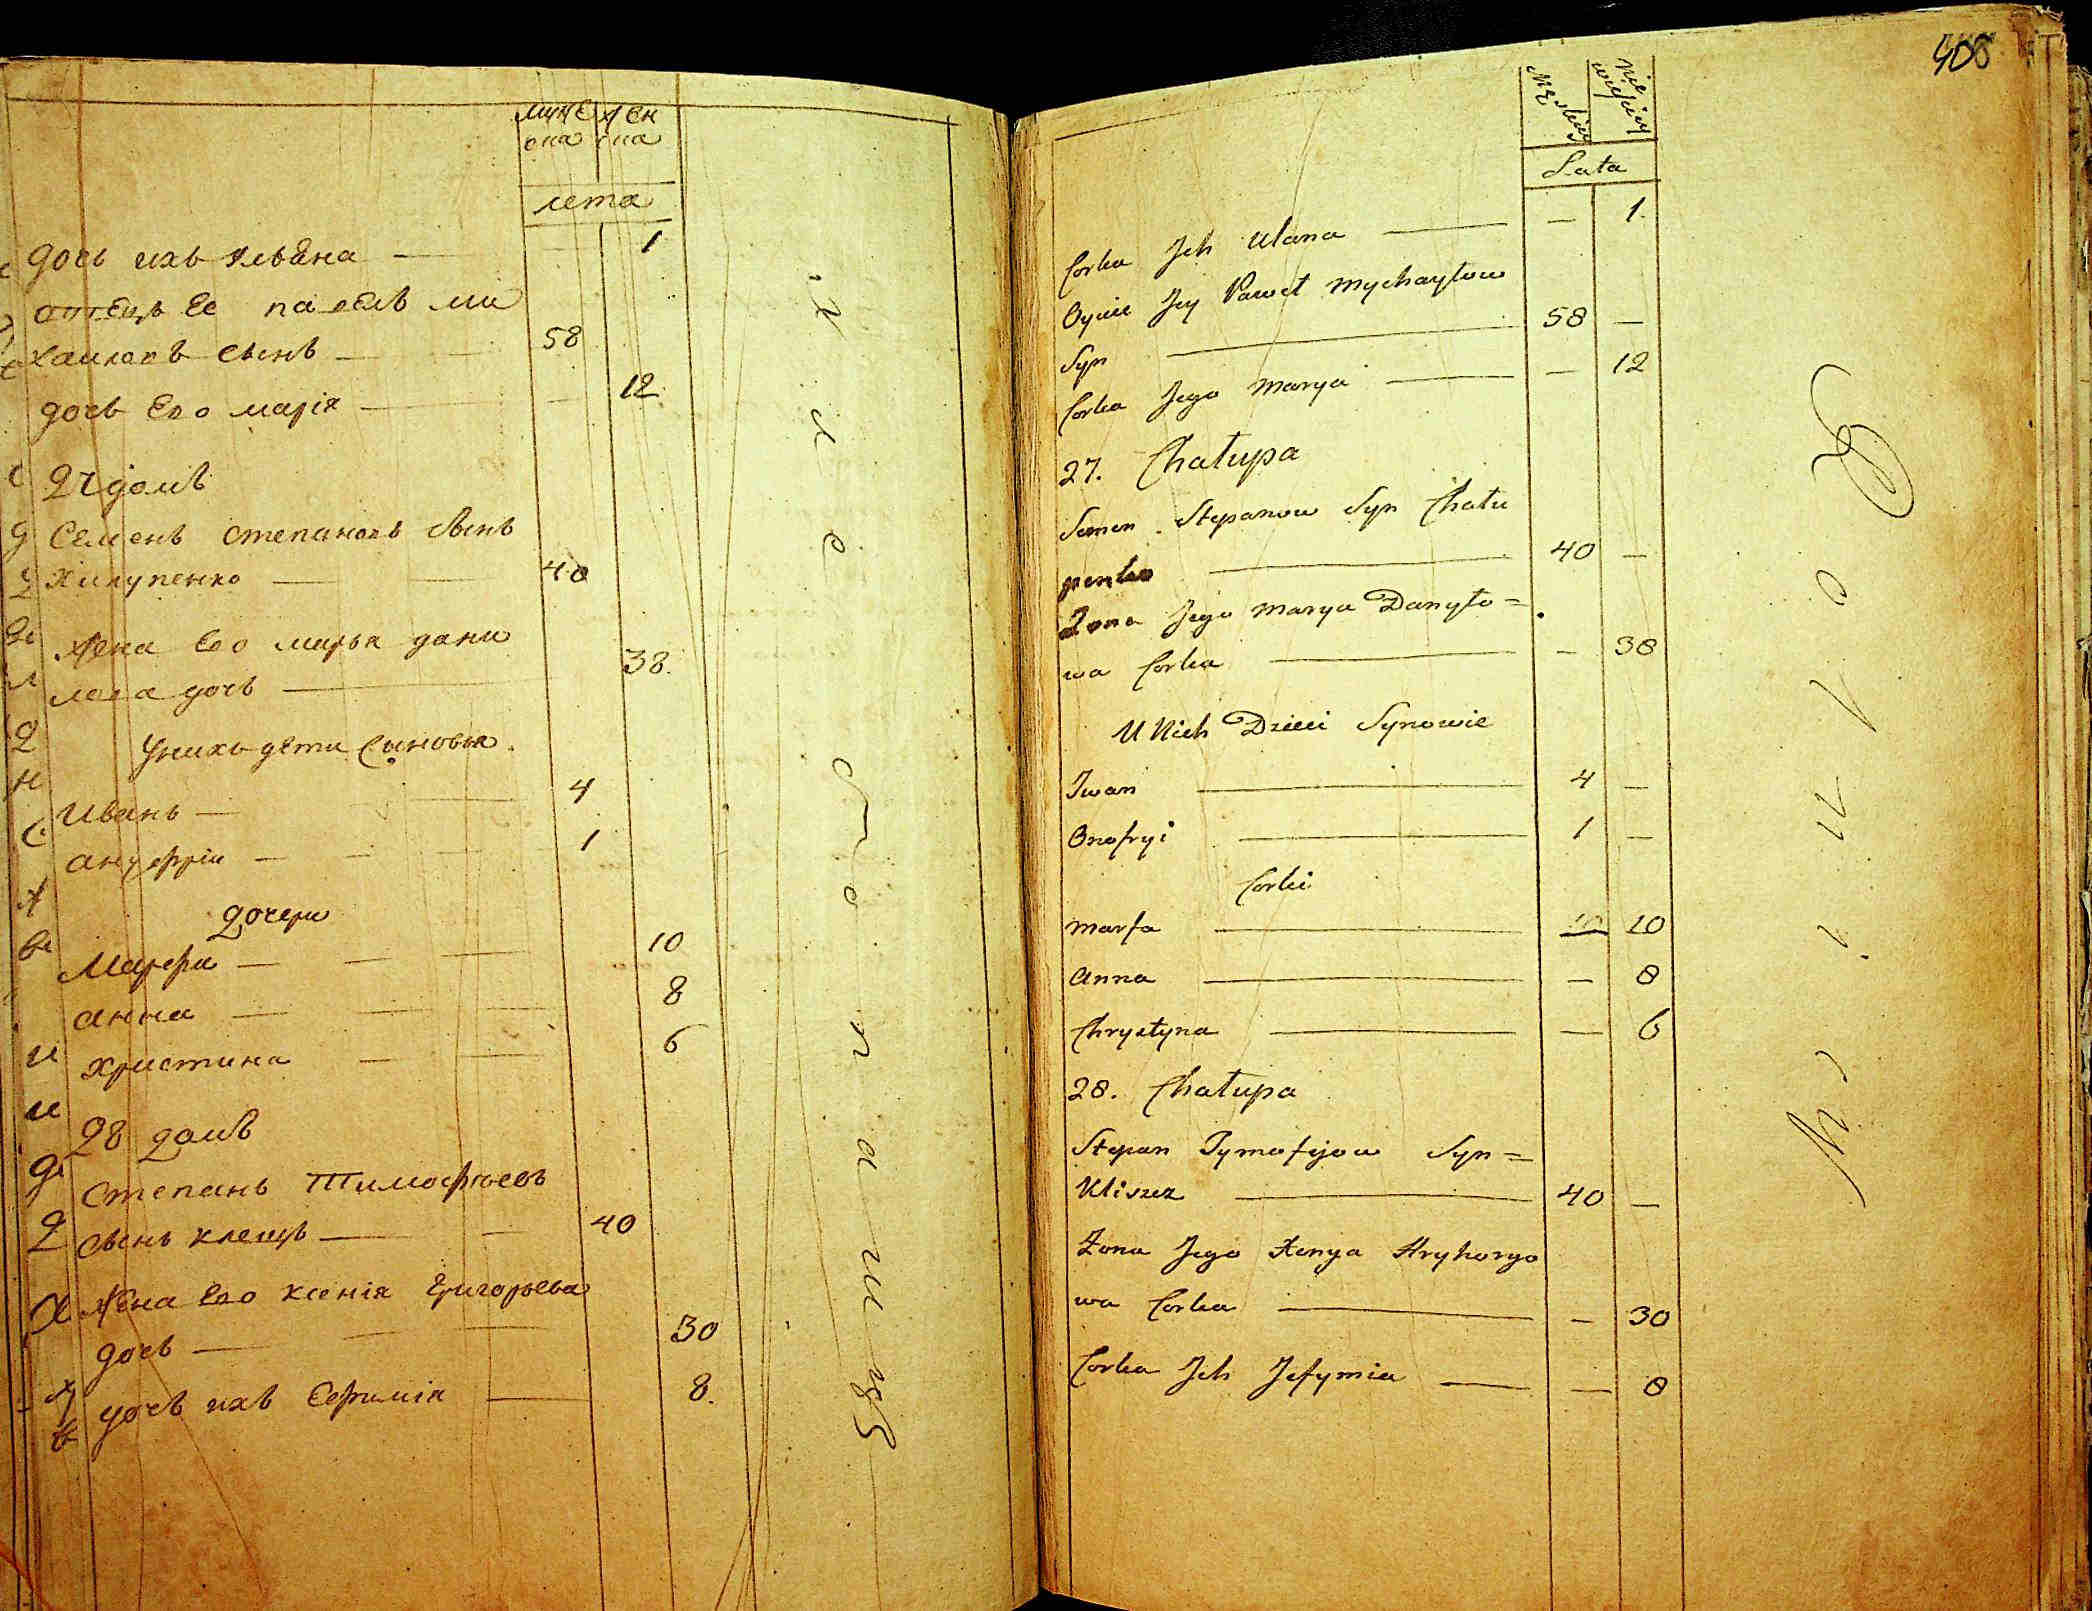 муже жен
ска ска
лета
дочь ихъ ульяна — 1
отецъ Ее павелъ ми
хаиловъ сынъ — 58
дочь Его марія — 12
27 домъ
Семенъ степановъ сынъ
Халупенко — 40
жена Его марья дани
лова дочь — 38.
у нихъ дети сыновья.
Иванъ — 4
ануфрїи — 1
дочери
Марфа — 10
анна — 8
христина — 6
28 домъ
степанъ Тимофѣевъ
сынъ клещъ — 40
жена Его ксенія Григорьева
дочь — 30
дочь ихъ Ефимія — 8.
408
Męskiey
Niewieściey
Lata
Corka Jch Ulana — — 1.
Oyciec Jey Paweł Mychayłow
Syn — 58 —
Corka Jego Marya — — 12
27. Chałupa
Semen Stepanow Syn Chału
penko — 40 —
Żona Jego Marya Danyło=
wa Corka — — 38
U Nich Dzieci Synowie
Jwan — 4 —
Onofryi — 1 —
Corki
Marfa — 10 10
Anna — — 8
Chrystyna — — 6
28. Chałupa
Stepan Tymofijow Syn=
Kliszcz — 40 —
Żona Jego Xenya Hryhoryo
wa Corka — — 30
Corka Jch Jefymia — — 8